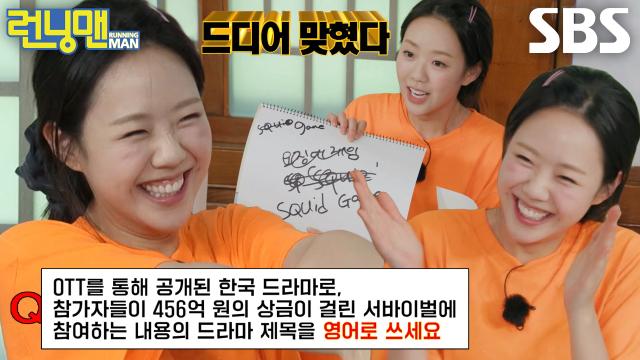 런닝맨
RUNNING
MAN
드디어 맞혔다
SBS
squid game
squid Game
Q
OTT를 통해 공개된 한국 드라마로,
참가자들이 456억 원의 상금이 걸린 서바이벌에
참여하는 내용의 드라마 제목을 영어로 쓰세요